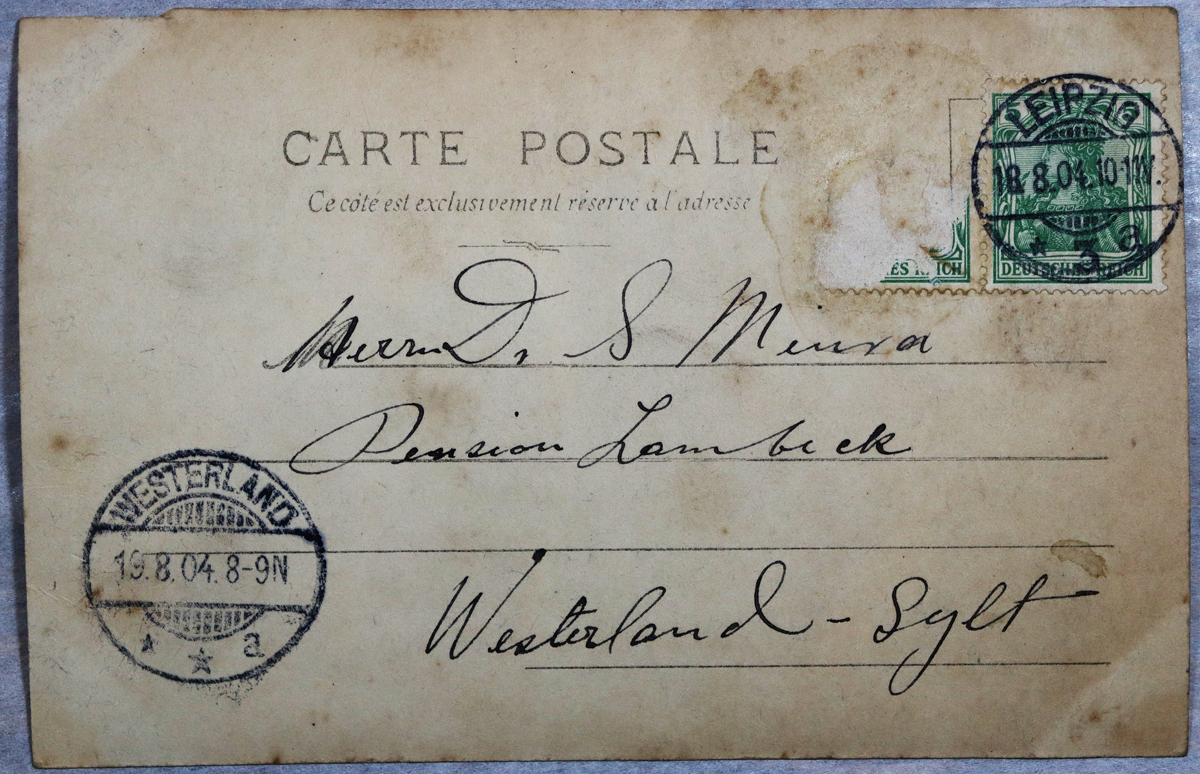 CARTE POSTALE
Ce côté est exclusivement réservé à l'adresse
LEIPZIG
18.8.04.10-11V.
* 3 a
ES REICH
DEUTSCHES REICH
Herrn Dr S Miura
Pension Lambeck
Westerland - Sylt
WESTERLAND
19.8.04.8-9N
* * a